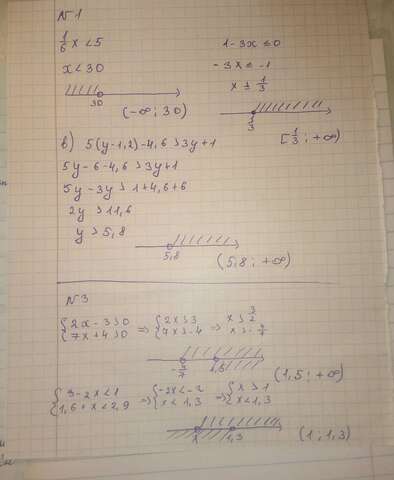 N 1
1/6 x < 5
x < 30
30
(-∞; 30)
1 - 3x ≤ 0
- 3x ≤ -1
x ≥ 1/3
1/3
[1/3; +∞)
в) 5(y-1,2) - 4,6 > 3y + 1
5y - 6 - 4,6 > 3y + 1
5y - 3y > 1 + 4,6 + 6
2y > 11,6
y > 5,8
5,8
(5,8; +∞)
N 3
{2x - 3 > 0 ⇒ {2x > 3 ⇒ x > 3/2
{7x + 4 > 0 {7x > -4 x > -4/7
-4/7 1,5
(1,5; +∞)
{3 - 2x < 1 ⇒ {-2x < -2 ⇒ {x > 1
{1,6 + x < 2,9 {x < 1,3 {x < 1,3
1 1,3
(1; 1,3)